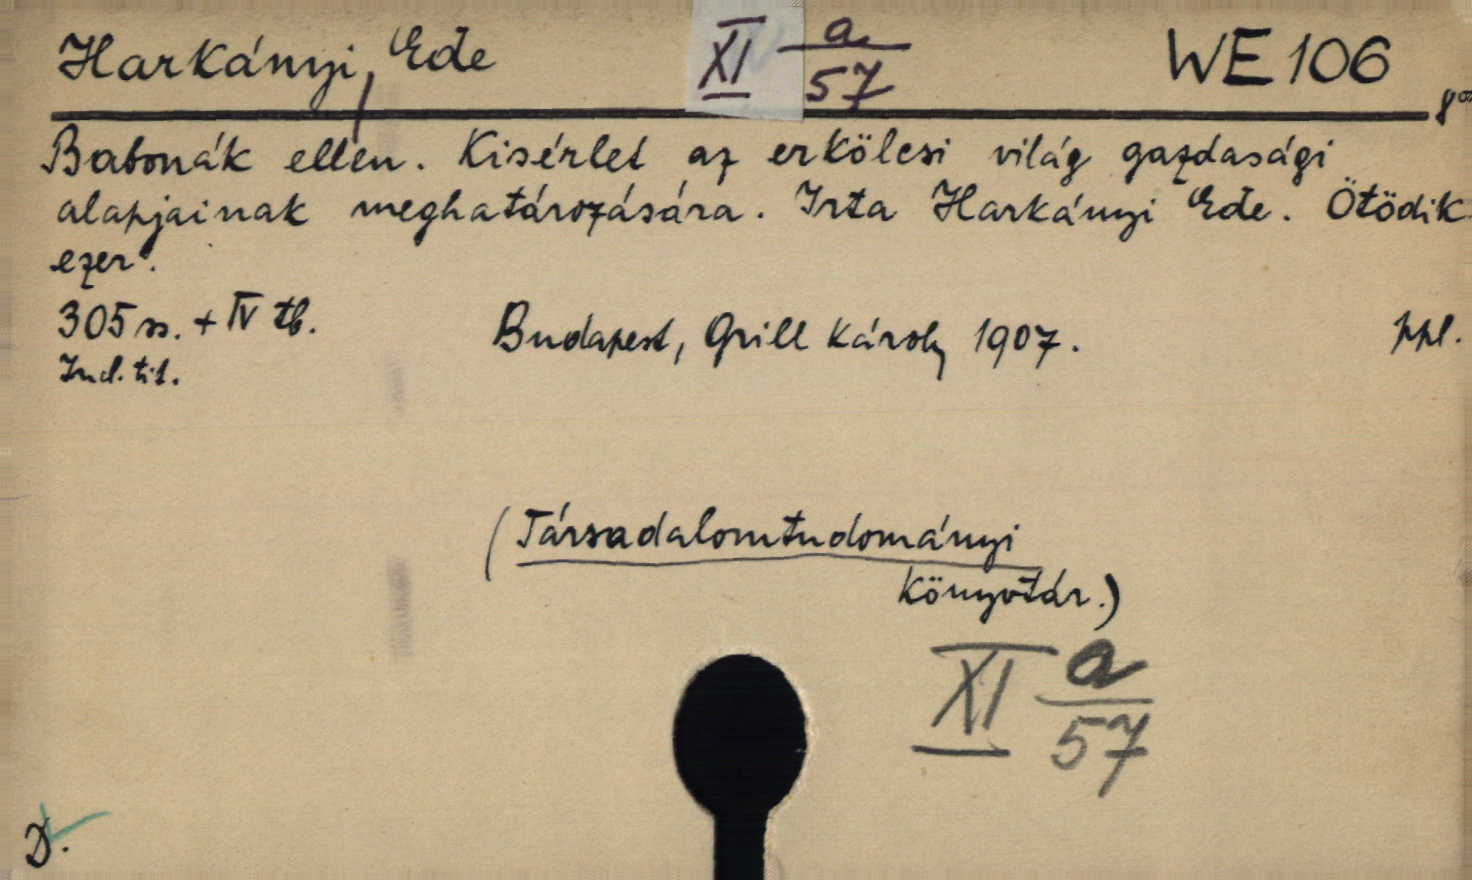 Harkányi, Ede
XI a/57
WE 106
8°
Babonák ellen. Kisérlet az erkölcsi világ gazdasági
alapjainak meghatározására. Irta Harkányi Ede. Ötödik
ezer.
305 ss. + IV tb.
Budapest, Grill Károly 1907.
ppl.
Ind. tit.
(Társadalomtudományi
Könyvtár.)
XI a/57
D.